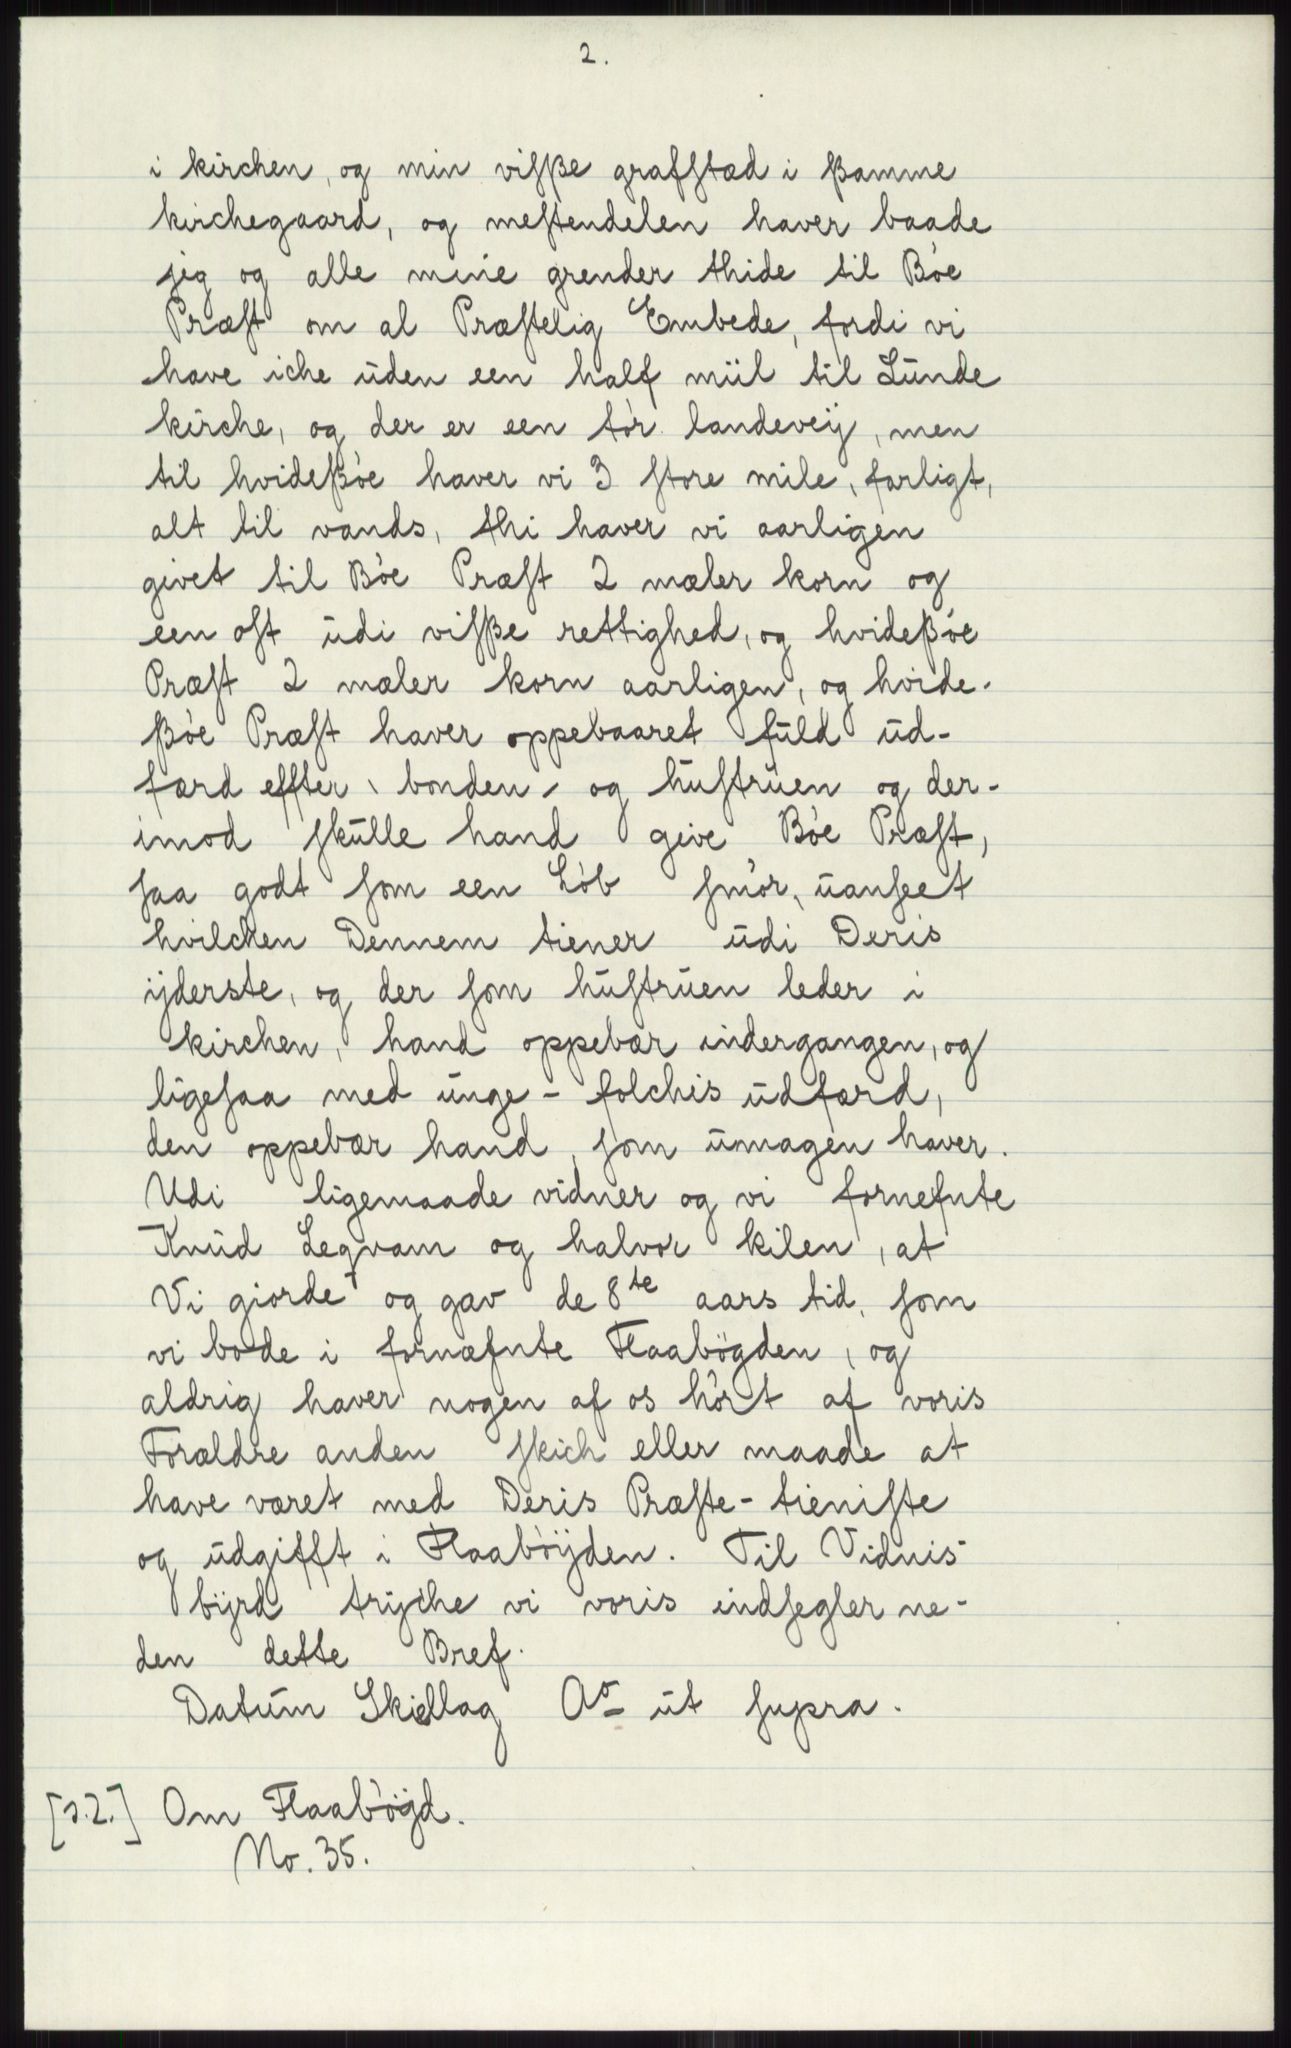 2.
i kirchen, og min visße grafstæd i ßamme
kirchegaard, og mestendelen haver baade
jeg og alle mine grender thide til Bóe
Præst om al Præstelig Embede, fordi vi
have iche ŭden een half miil til Lŭnde
kirche, og der er een tór landeveij, men
til hvideßóe haver vi 3 store mile, farligt,
alt til vands, thi haver vi aarligen
givet til Bóe Præst 2 mæler korn og
een ost ŭdi visße rettighed, og hvideßóe
Præst 2 mæler korn aarligen, og hvide-
ßóe Præst haver oppebaaret fŭld ŭd-
færd effter bonden og hŭstrŭen og der-
imod skŭlle hand give Bóe Præst,
saa godt som een Lób smór, ŭanseet
hvilchen Dennem tiener ŭdi Deris
ijderste, og der som hŭstrŭen leder i
kirchen, hand oppebær indergangen, og
ligesaa med ŭnge- folchis ŭdfærd,
den oppebær hand, som ŭmagen haver.
Udi ligemaade vidner og vi fornefnte
Knŭd Legvam og halvor kilen, at
Vi giorde og gav de 8te aars tid, som
vi bode i fornæfnte Flaabögden, og
aldrig haver nogen af os hórt af voris
Forældre anden skich eller maade at
have været med Deris Præste- tieniste
og ŭdgifft i Flaabóijden. Til Vidnis-
bijrd trijche vi voris indsegler ne-
den dette Bref.
Datŭm Skiellag Ao ŭt supra.
[s.2.] Om Flaabógd.
No. 35.